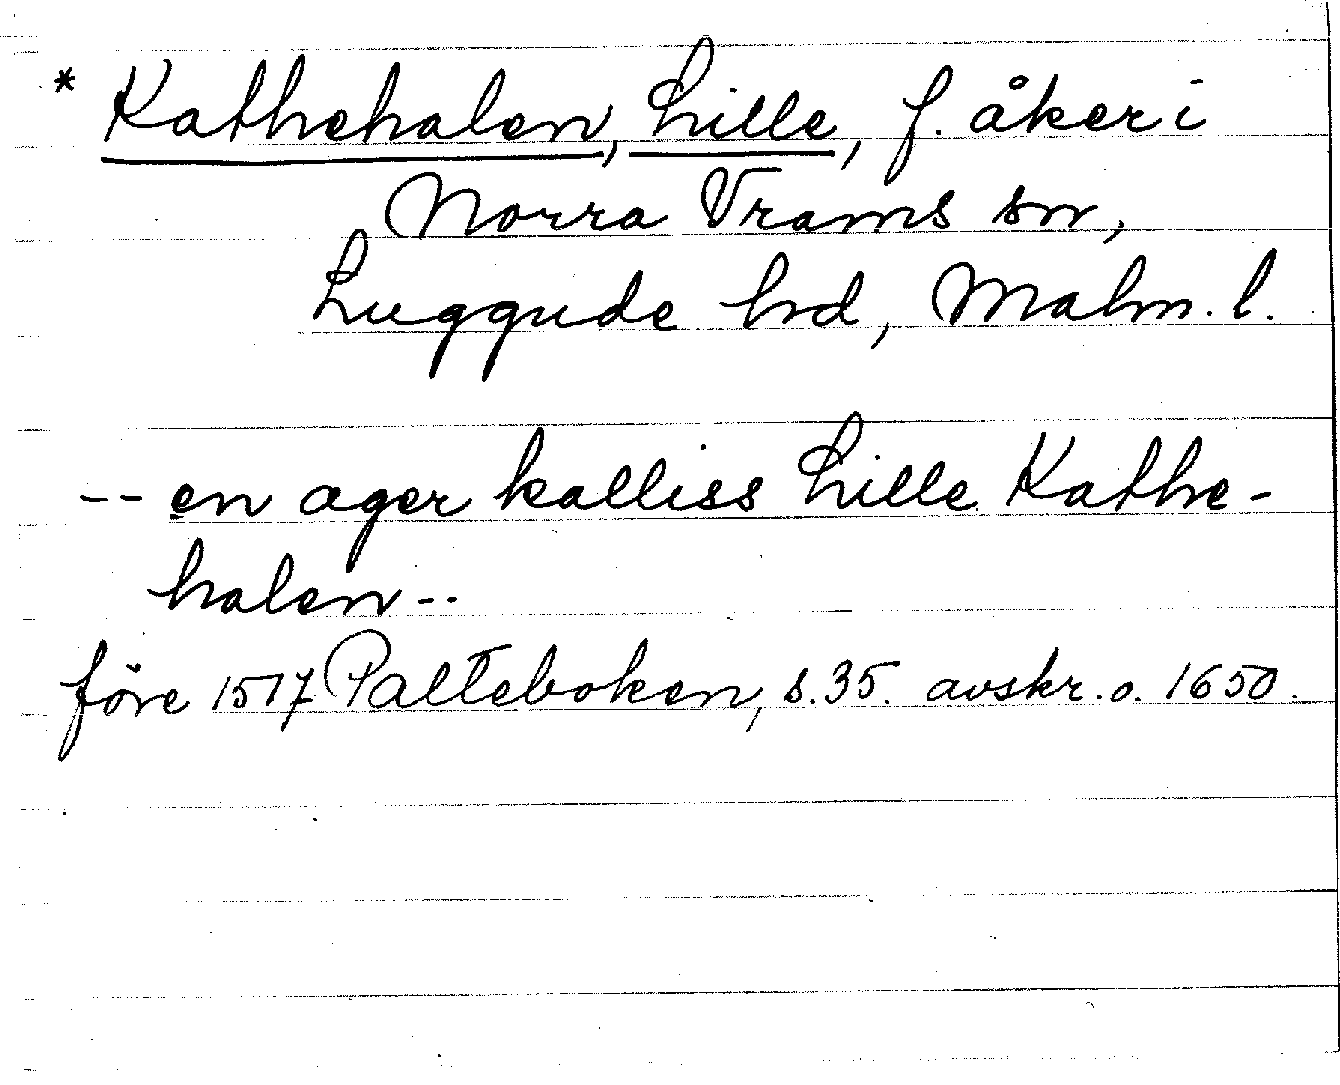 * Kathehalen, Lille, f. åker i
Norra Vrams sn,
Luggude hd, Malm. l.
-- en ager kalliss Lille Kathe-
halen --
före 1517 Palteboken, s. 35. avskr. o. 1650.